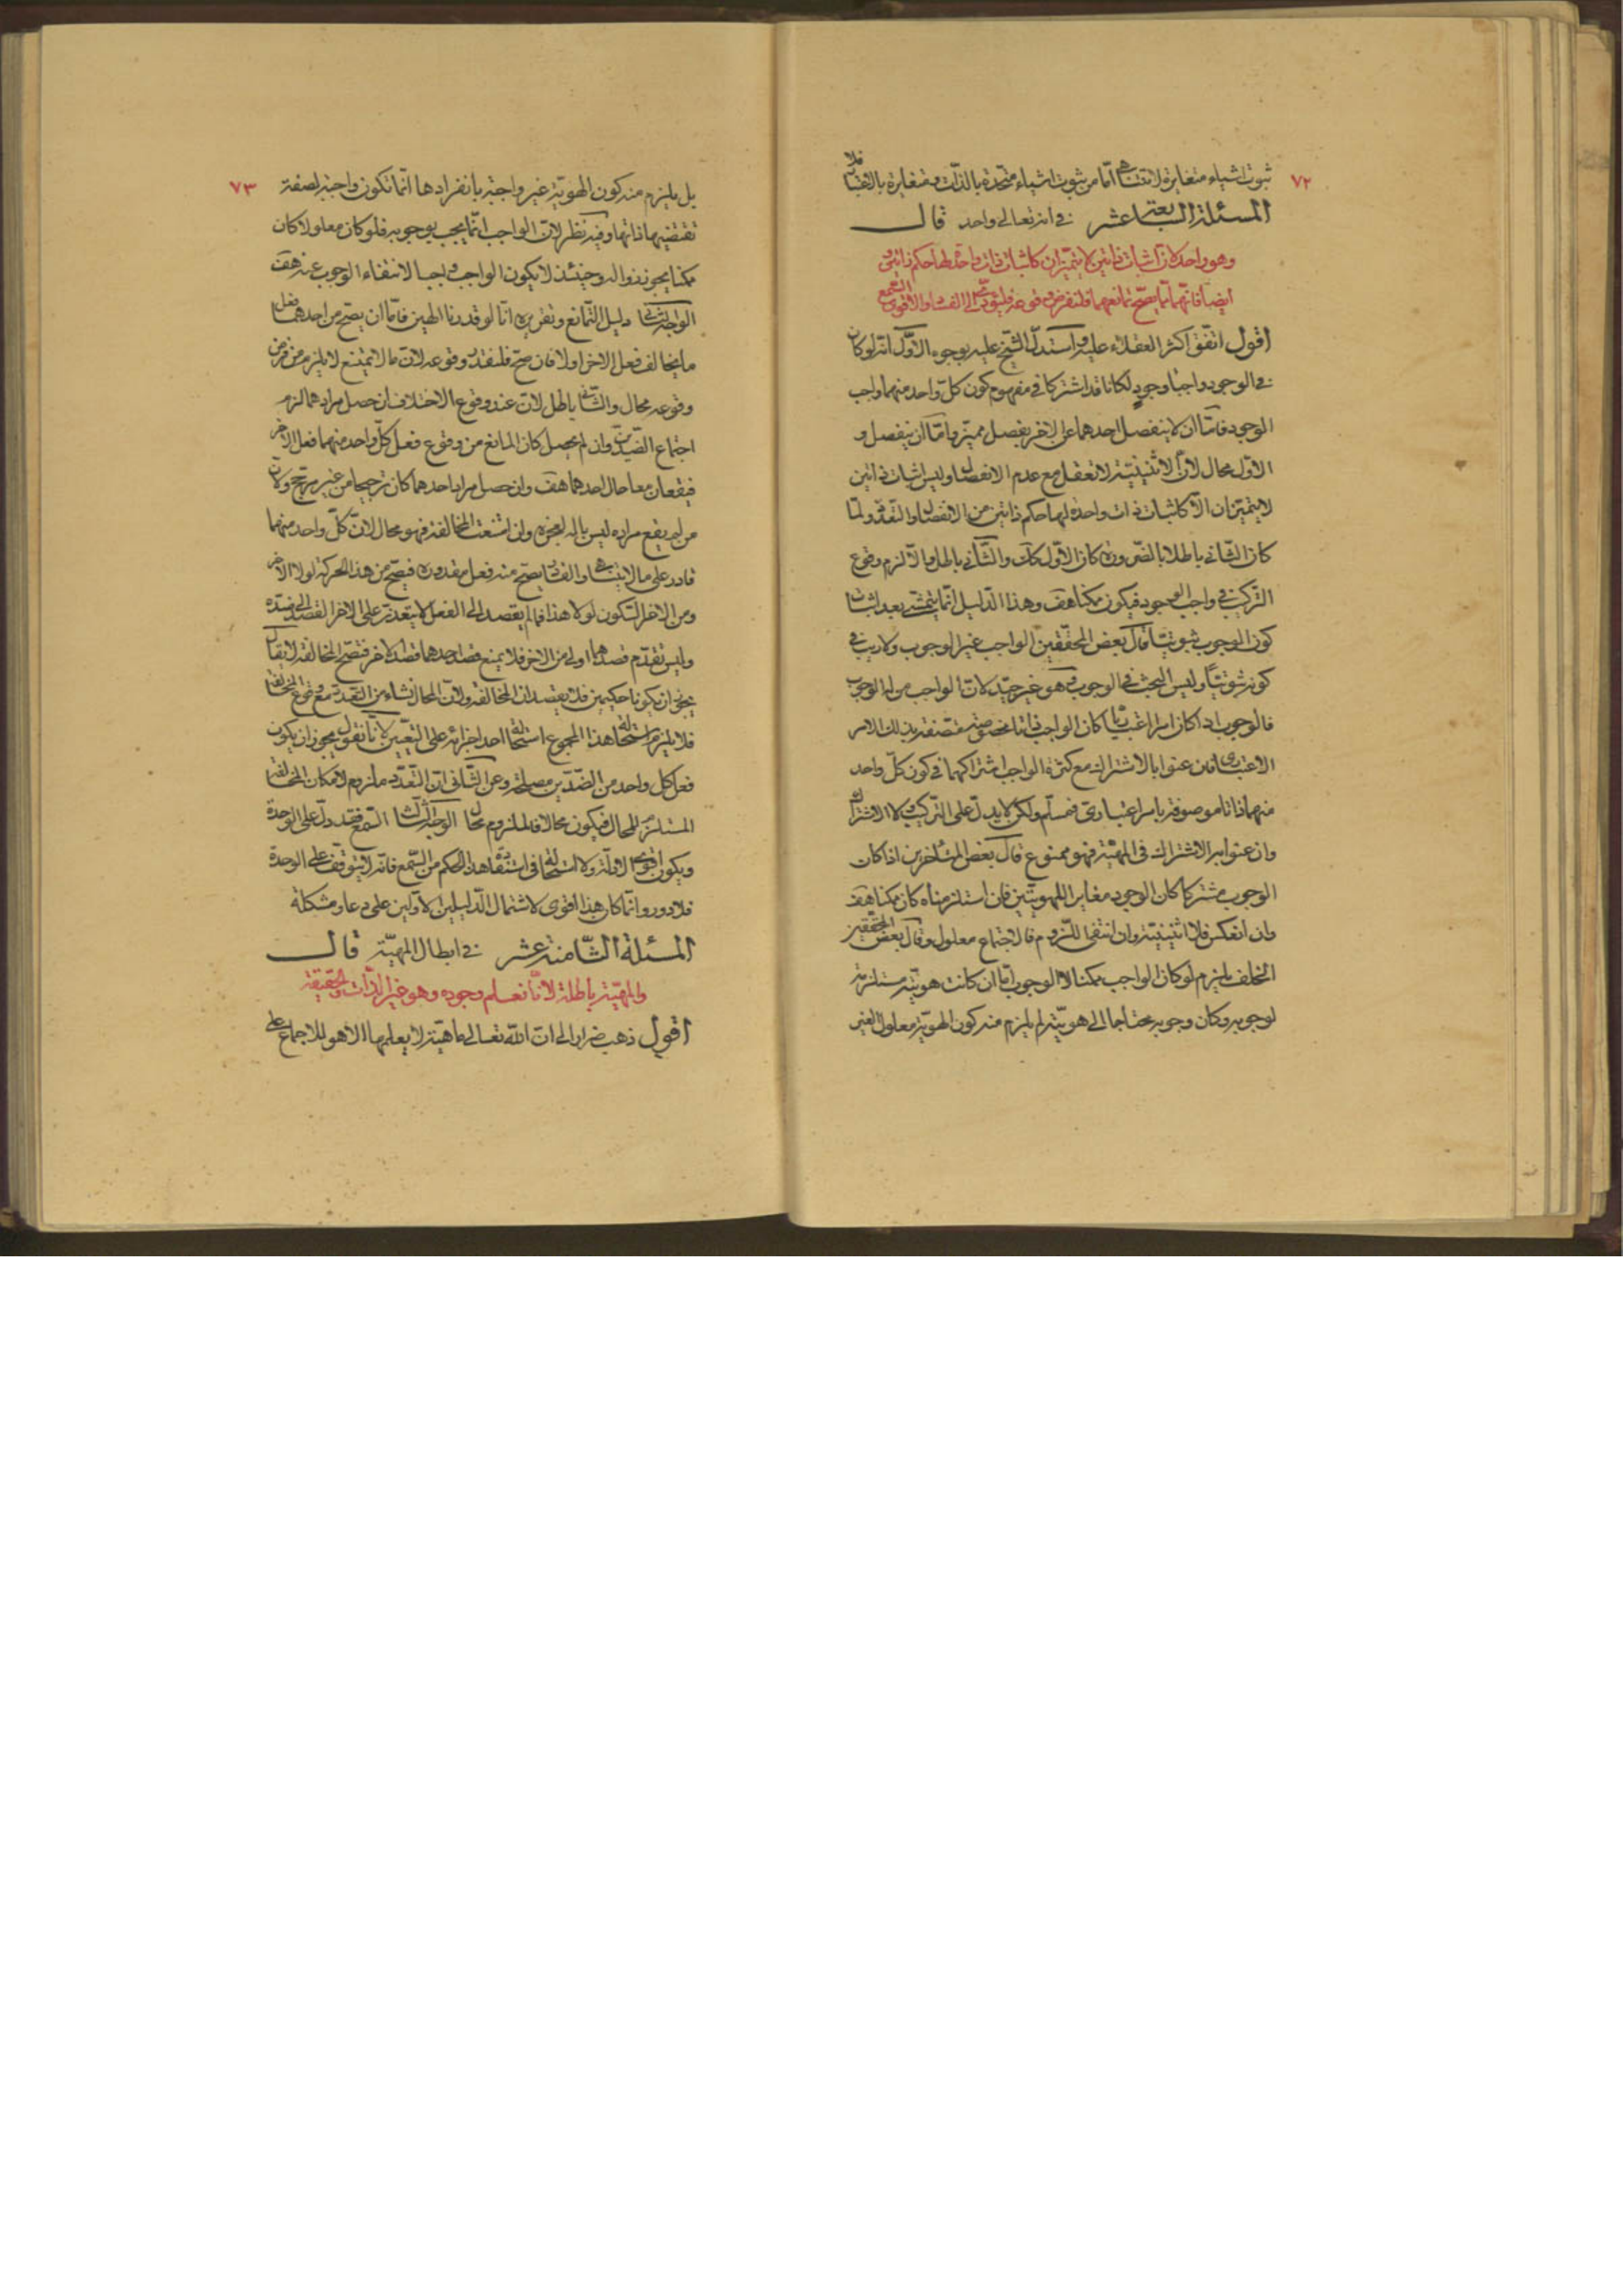 ٧٢
ثبوت اشياء متغايرة لا تتناهى امّا من ثبوت اشياء متّحدة بالذّات ومتغايرة بالاعتبار فلا
المسئلة السّابعة عشر في انّه تعالى واحد قال
وهو واحد لانّ اثبات ذاتين لا يتميّزان كاثبات ذات واحدة لها حكم ذاتين و
ايضا فانّهما يصحّ تمانعهما فلنفرض وقوعه فليؤدّى الى الفساد والاقوى السّمع
اقول اتّفق اكثر العقلاء عليه واستدلّ الشّيخ عليه بوجوه الاوّل انّه لو كان
في الوجود واجبا وجود لكانا قد اشتركا في مفهوم كون كلّ واحد منهما واجب
الوجود فامّا ان لا ينفصل احدهما عن الاخر بفصل مميّز وامّا ان ينفصل و
الاوّل محال لانّ الاثنينيّة لا تعقل مع عدم الانفصال وليس اثبات ذاتين
لا يتميّزان الّا كاثبات ذات واحدة لها حكم ذاتين من الانفصال والتّعدّد ولمّا
كان الثّاني باطلا بالضّرورة كان الاوّل كك والثّاني باطل والّا لزم وقوع
التّركيب في واجب الوجود فيكون ممكنا هف وهذا الدّليل انّما يتمشّى بعد اثبات
كون الوجوب ثبوتيّا قال بعض المحقّقين الواجب غير الوجوب ولا ريب في
كونه ثبوتيّا وليس البحث في الوجوب وهو غير جيّد لانّ الواجب من له الوجوب
فالوجوب اذا كان امرا اعتباريّا كان الواجب ذاتا مخصوصة متّصفة بذلك الامر
الاعتبارى فان عنوا بالاشتراك مع كثرة الواجب اشتراكهما في كون كلّ واحد
منهما ذاتا موصوفة بامر اعتبارى فمسلّم ولكن لا يدلّ على التّركيب والاشتراك
وان عنوا به الاشتراك في المهيّة فهو ممنوع قال بعض المتأخرين اذا كان
الوجوب مشتركا كان الوجود مغايرا للهويّتين فان استلزمناه كان ممكنا هف
وان انعكس فلا اثنينيّة وان انتفى اللّزوم فالاجتماع معلول وقال بعض المحقّقين
الخلف يلزم لو كان الواجب ممكنا لا الوجوب امّا ان كانت هويّته مستلزمة
لوجوبه وكان وجوبه محتاجا الى هويّته لم يلزم منه كون الهويّة معلولا لغير
٧٣
بل يلزم منه كون الهويّة غير واجبة بانفرادها انّما تكون واجبة لصفة
تقتضيها ذاتها وفيه نظر لانّ الواجب انّما يجب بوجوبه فلو كان معلولا كان
ممكنا يجوز زواله وحينئذ لا يكون الواجب واجبا لانتفاء الوجوب عنه هف
الوجه الثّانى دليل التّمانع وتقريره انّا لو قدرنا الهين فامّا ان يصحّ من احدهما فعل
ما يخالف فعل الاخر او لا فان صحّ فلنقدّر وقوعه لانّ ما لا يمتنع لا يلزم من فرض
وقوعه محال والثّانى باطل لانّ عند وقوع الاختلاف ان حصل مرادهما لزم
اجتماع الضّدّين وان لم يحصل كان المانع من وقوع فعل كلّ واحد منهما فعل الاخر
فيقعان معا حال احدهما هف وان حصل مراد احدهما كان ترجيحا من غير مرجّح ولانّ
من لم يقع مراده ليس باله لعجزه وان امتنعت المخالفة فهو محال لانّ كلّ واحد منهما
قادر على ما لا يتناهى والقادر يصحّ منه فعل مقدوره فيصحّ من هذا الحركة لولا الاخر
ومن الاخر السّكون لولا هذا فما لم يقصد الى الفعل لا يتعذر على الاخر القصد الى ضدّه
وليس تقدّم قصد احدهما اولى من الاخر فلا يمنع قصد احدهما قصد الاخر فتصحّ المخالفة لا يقال
يجوز ان يكونا حكيمين فلا يقصدان المخالفة ولانّ المحال نشاء من التّعدّد مع وقوع المخالفة
فلا يلزم من استحالة هذا المجموع استحالة احد اجزائه على التّعيين لانّا نقول يجوز ان يكون
فعل كل واحد من الضّدّين مصلحة وعن الثّانى انّ التّعدّد ملزوم لامكان المخالفة
المستلزم للمحال فيكون محالا فالملزوم محال الوجه الثّالث السّمع فقد دلّ على الوحدة
ويكون اقوى الادلّة ولا استحالة في استفادة هذا الحكم من السّمع فانّه لا يتوقّف على الوحدة
فلا دور وانّما كان هذا اقوى لاشتمال الدّليلين الاوّلين على دعاو مشكلة
المسئلة الثّامنة عشر في ابطال المهيّة قال
والمهيّة باطلة لانّا نعلم وجوده وهو غير الذّات والحقيقة
اقول ذهب ضرار الى انّ الله تعالى ماهيّة لا يعلمها الا هو للاجماع على